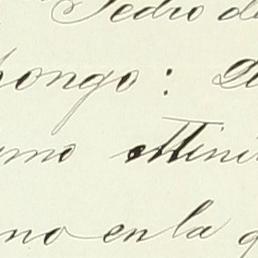 Pedro de
pongo: De
mo Mini
no en la q